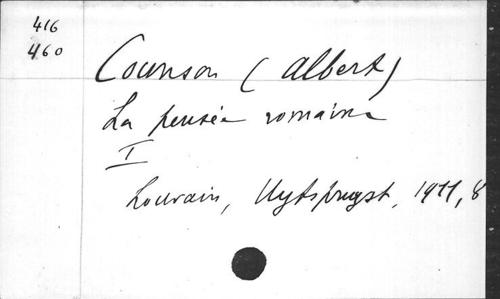 416
460
Counson (Albert)
La pensée romaine
I
Louvain, Uytspruyst, 1911, 8